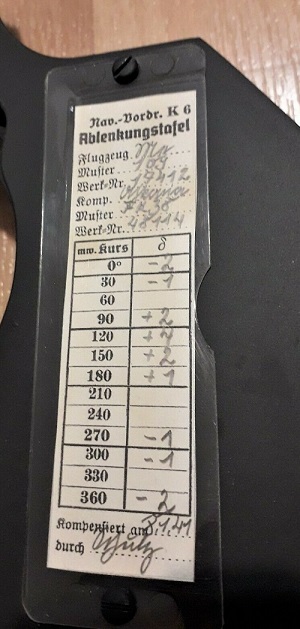 Nav.-Vordr. K 6
Ablenkungstafel
Flugzeug Me
Muster 109
Werk-Nr. 12412
Komp. Askania
Muster
Werk-Nr. 48114
mw. Kurs δ
0° -2
30 -1
60
90 +2
120
150 +2
180 +1
210
240
270 -1
300 -1
330
360 -2
Kompensiert am 3.1.41
durch Schulz